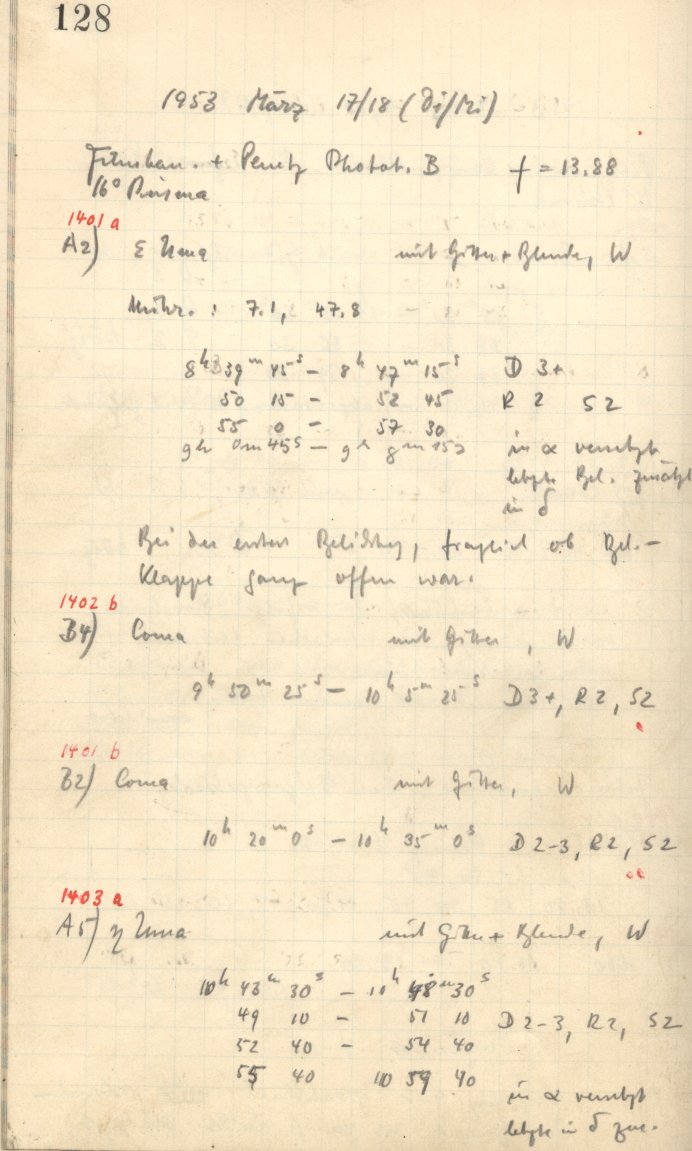 128
1953 März 17/18 (Di/Mi)
+ Photot. B f = 13.88
16° Prisma
1401 a
A2) ε Uma mit Gitter + Blende, W
: 7.1, 47.8
8h 39m 45s – 8h 47m 15s D 3+
50 15 – 52 45 R 2 S2
55 0 – 57 30
9h 0m 45s – 9h 8m 15s in α versetzt
letzte Bel. zusätzl
in δ
Bei der ersten Belichtung, fraglich ob Bel.–
Klappe ganz offen war.
1402 b
B4) Coma mit Gitter , W
9h 50m 25s – 10h 5m 25s D3+, R2, S2
1401 b
B2) Coma mit Gitter, W
10h 20m 0s – 10h 35m 0s D 2–3, R2, S2
1403 a
A5) η Uma mit Gitter + Blende, W
10h 43m 30s – 10h 48m 30s
49 10 – 51 10 D 2–3, R2, S2
52 40 – 54 40
55 40 10 59 40
in α versetzt
letzte in δ zus.